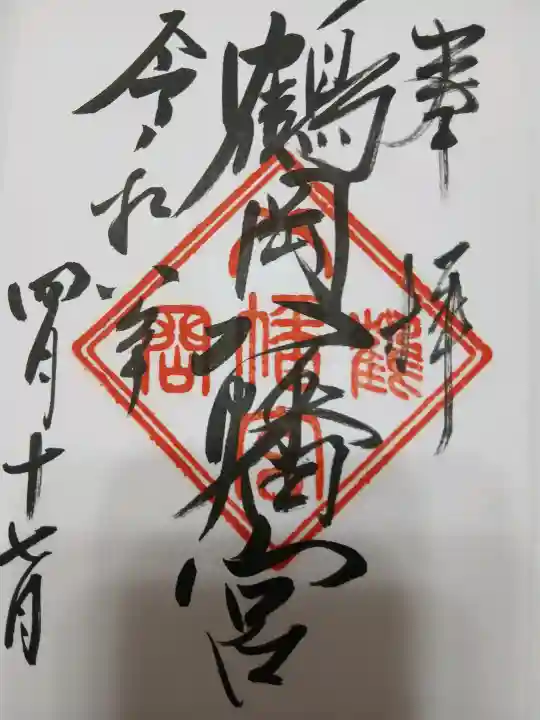 奉拝
鶴岡八幡宮
令和八年
四月十七日
鶴
八幡宮
岡